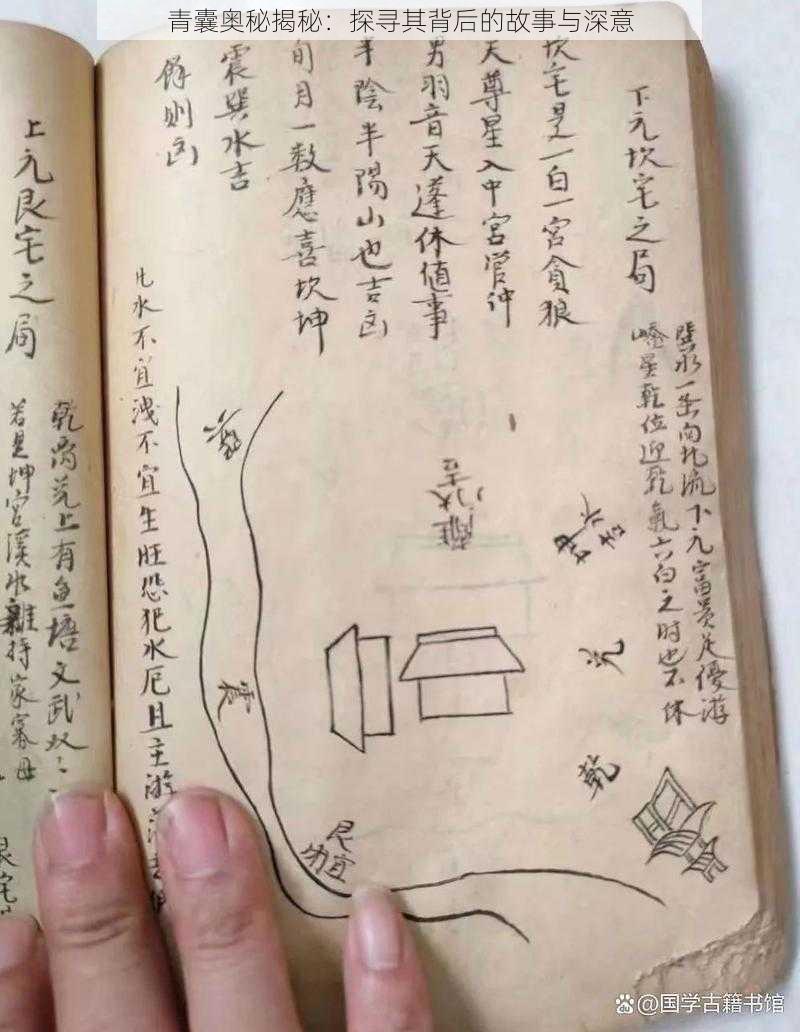 青囊奥秘揭秘：探寻其背后的故事与深意
下元坎宅之局
巽水一条向北流下元富贵足優游
星乾位迎乾氣六白之时也不休
坎宅是一白一宮貪狼
天尊星入中宮管仲
男羽音天蓬休值事
半陰半陽山也吉凶
旬月一数應喜坎坤
震巽水吉
餘則凶
凡水不宜洩不宜生旺怨犯水厄且主游
巽
離
坤水吉
震
兑
乾
艮宜
上元艮宅之局
乾离兑上有魚塘文武双
若是坤宮溪水離持家寡母
艮宅
@国学古籍书馆